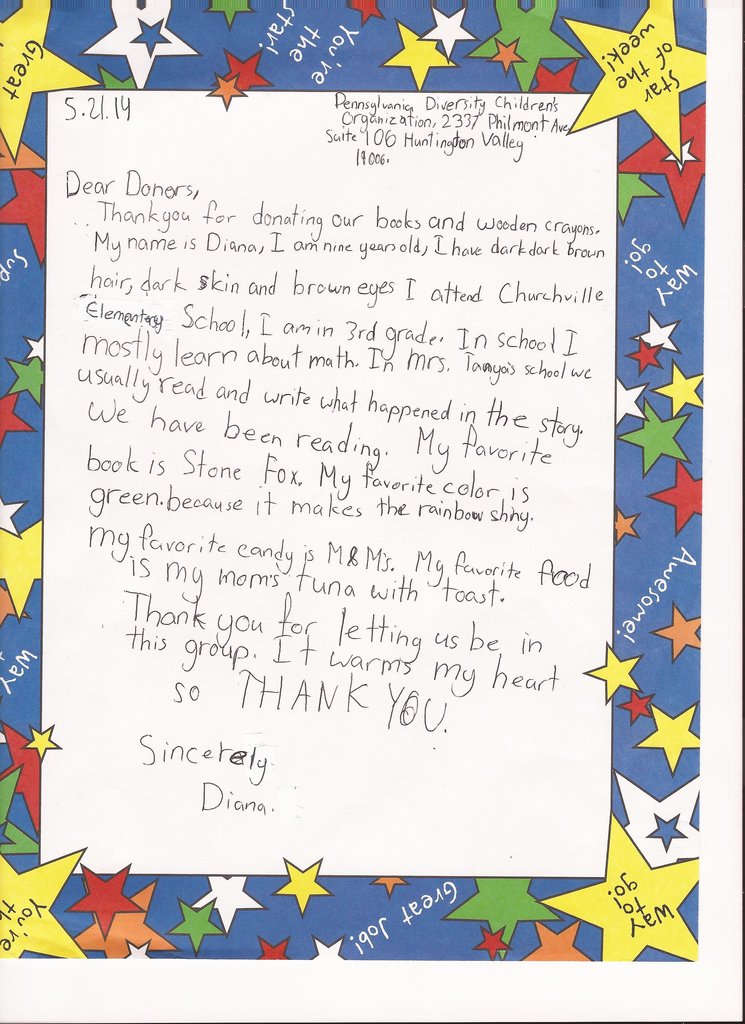 Great
You're the star!
star of the week!
5.21.14
Pennsylvania Diversity Children's
Organization, 2337 Philmont Ave
Suite 106 Huntingdon Valley
19006.
Dear Donors,
Thankyou for donating our books and wooden crayons.
My name is Diana, I am nine years old, I have dark dark brown
hair, dark skin and brown eyes I attend Churchville
Elementary School, I am in 3rd grade. In school I
mostly learn about math. In Mrs. Tanya's school we
usually read and write what happened in the story.
We have been reading. My favorite
book is Stone Fox. My favorite color is
green. because it makes the rainbow shiny.
my favorite candy is M&M's. My favorite food
is my mom's tuna with toast.
Thank you for letting us be in
this group. It warms my heart
so THANK YOU.
Sincerely
Diana.
Way to go!
Awesome!
Sup
Way
You're th
Great Job!
Way to go!